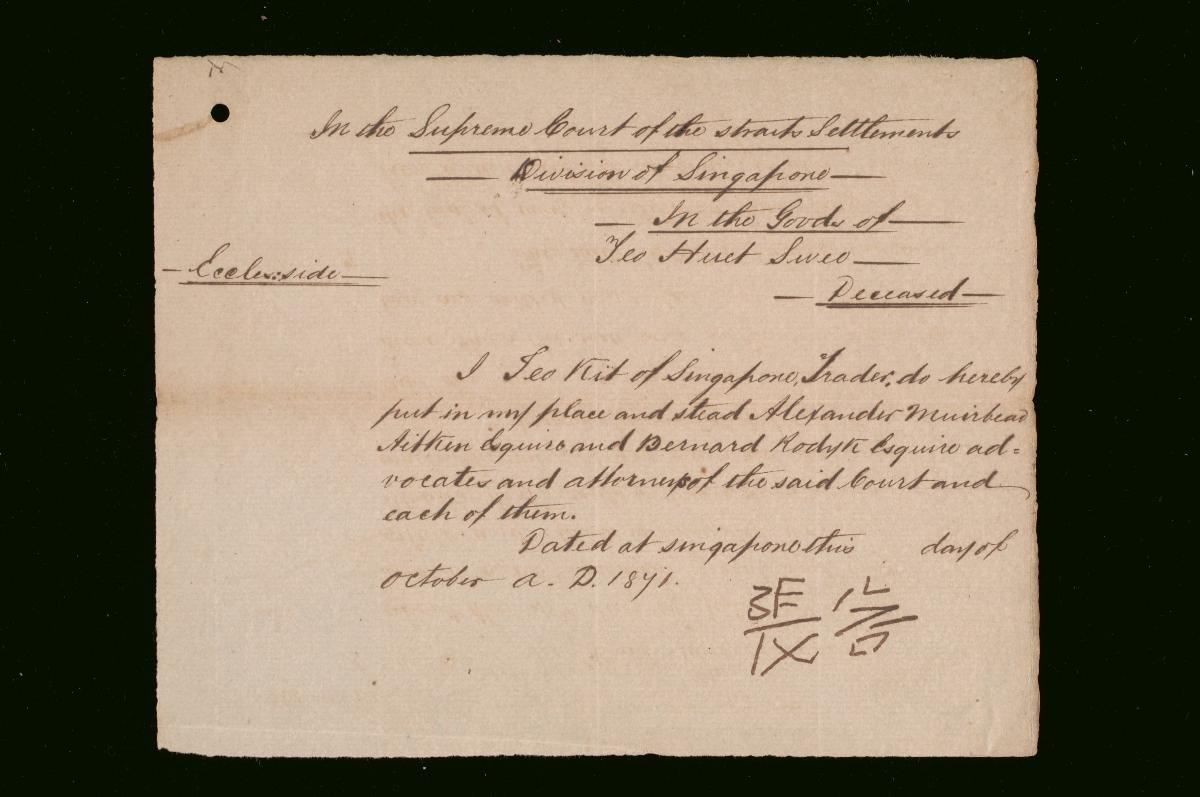 In the Supreme Court of the straits Settlements
Division of Singapore
In the Goods of
Teo Huet Swee
Eccles: side
Deceased
I Teo Kit of Singapore, Trader, do hereby
put in my place and stead Alexander Muirhead
Aitken Esquire and Bernard Rodyk Esquire ad=
vocates and attorneys of the said Court and
each of them.
Dated at singapore this day of
October A. D. 1871.